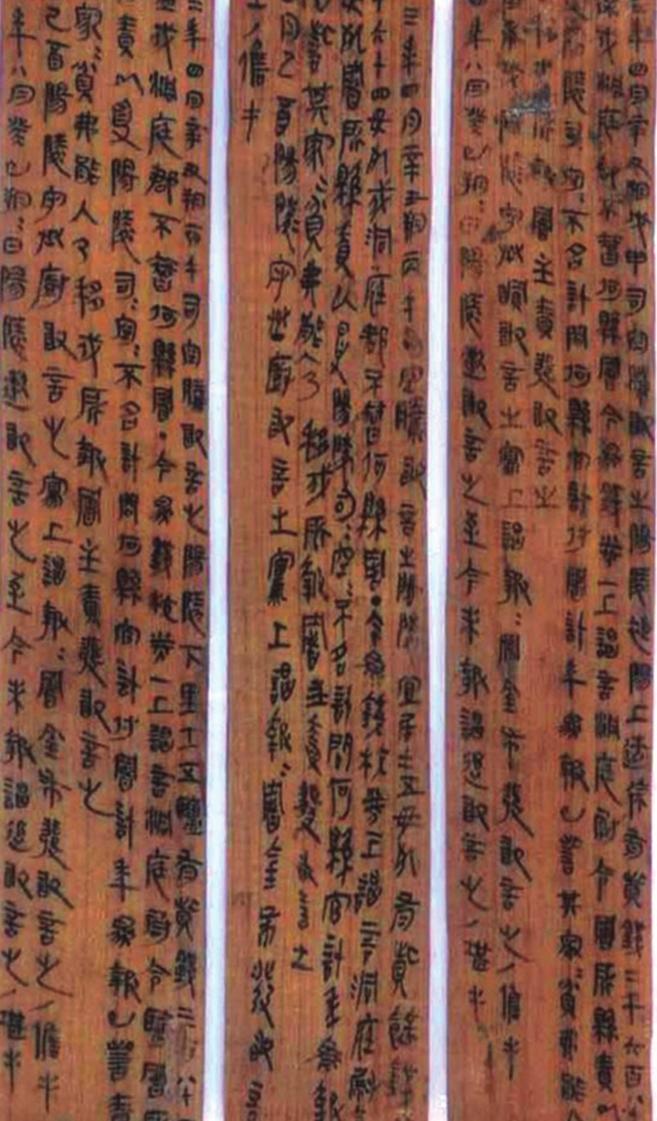 三年四月辛丑朔戊申司空騰敢言之陽陵褆陽上造徐有貲錢二千六百八
徐戍洞庭郡不智何縣署今為錢校券一上謁言洞庭尉令署所縣責以
陽陵司空不名計問何縣官計付署計年為報已訾其家=貧弗能入
移戍所報署主責發敢言之
陽陵守丞敢言之寫上謁報=署金布發敢言之/儋手
四年八月癸巳朔=日陽陵遬敢言之至今未報謁追敢言之/堪手
三年四月辛丑朔丙午司空騰敢言之陽陵宜居士五毋死有貲餘錢
六十四毋死戍洞庭郡不智何縣署·今為錢校券一上謁言洞庭尉
毋死署所縣責以受陽陵司=空=不名計問何縣官計年為報
已訾其家=貧弗能入乃移戍所報署主責發敢言之
四月己酉陽陵守丞廚敢言之寫上謁報=署金布發敢言
之/儋手
三年四月辛丑朔丙午司空騰敢言之陽陵下里士五鹽有貲錢三百八十四
鹽戍洞庭郡不智何縣署·今為錢校券一上謁言洞庭尉令鹽署所
責以受陽陵司=空=不名計問何縣官計付署計年為報已訾責
家=貧弗能入乃移戍所報署主責發敢言之
己酉陽陵守丞廚敢言之寫上謁報=署金布發敢言之/儋手
年八月癸巳朔=日陽陵遬敢言之至今未報謁追敢言之/堪手